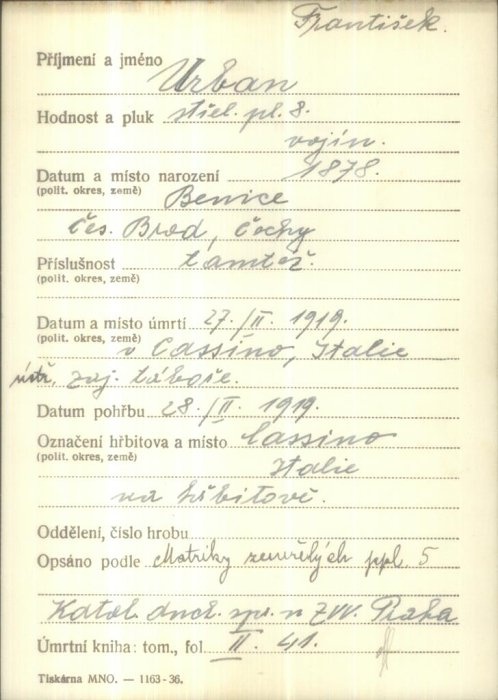 František.
Příjmení a jméno Urban
Hodnost a pluk střel. pl. 8.
vojín.
Datum a místo narození 1878.
(polit. okres, země) Benice
Čes. Brod, Čechy
Příslušnost tamtéž.
(polit. okres, země)
Datum a místo úmrtí 27./II. 1919.
(polit. okres, země) v Cassino, Italie
zaj. táboře.
Datum pohřbu 28./II. 1919.
Označení hřbitova a místo Cassino
(polit. okres, země) Italie
na hřbitově.
Oddělení, číslo hrobu
Opsáno podle Matriky zemřelých ppl. 5
Katol. duch. spr. u ZVV. Praha
Úmrtní kniha: tom., fol II. 41.
Tiskárna MNO. — 1163-36.